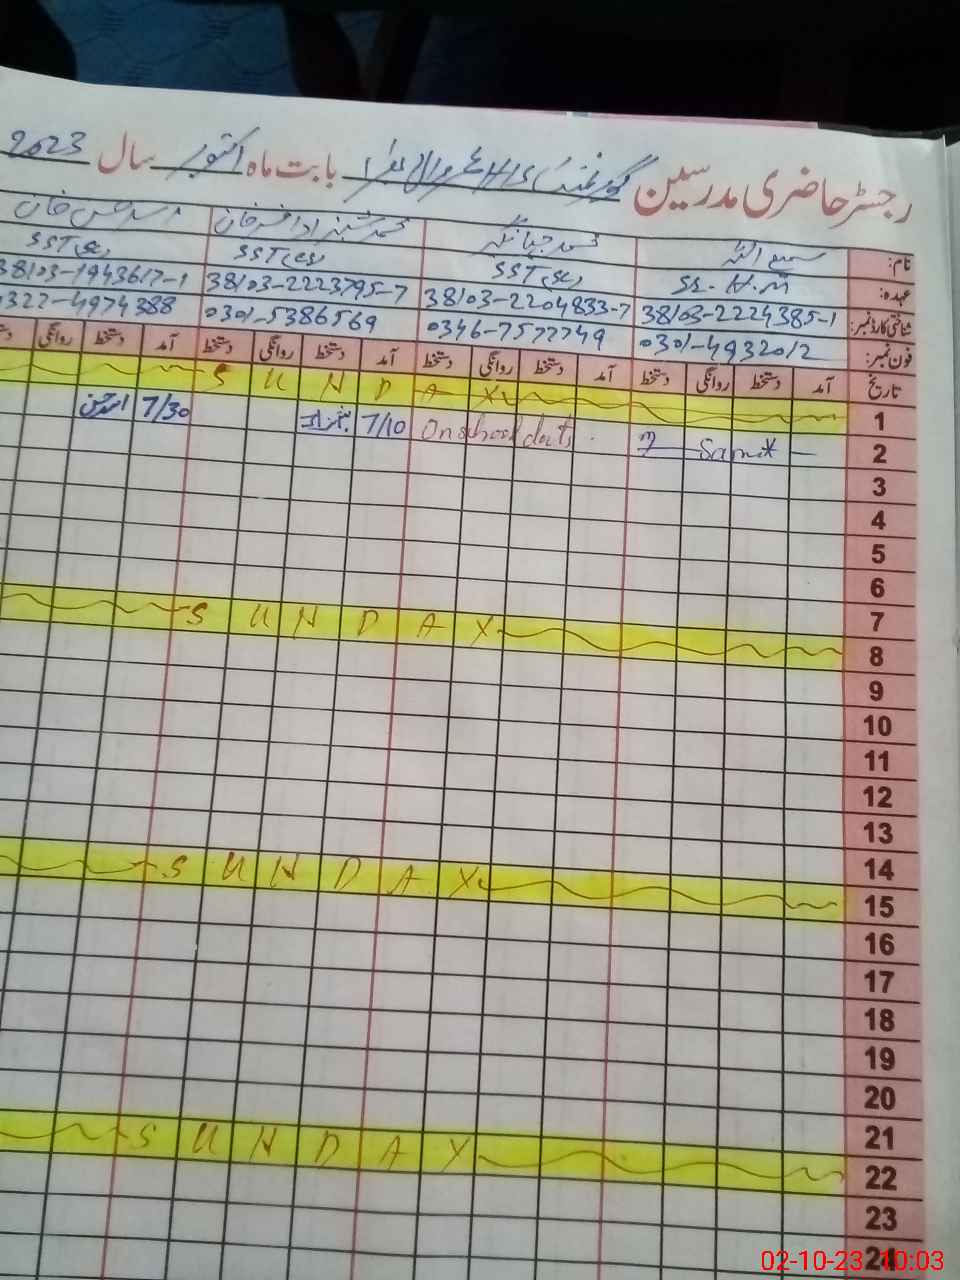 رجسٹر حاضری مدرسین گورنمنٹ بابت ماہ اکتوبر سال 2023
نام: سمیع اللہ محمد جہانگیر محمد شہزادہ افسر خان
عہدہ: SS. H.M SST SST SST
شناختی کارڈ نمبر: 38103-2224385-1 38103-2204833-7 38103-2223795-7 38103-1943617-1
فون نمبر: 0301-4932012 0346-7577749 0301-5386569 0322-4974388
تاریخ آمد دستخط روانگی دستخط آمد دستخط روانگی دستخط آمد دستخط روانگی دستخط آمد دستخط روانگی
1 SUNDAY
2 On school 7/10 7/30
3
4
5
6
7
8 SUNDAY
9
10
11
12
13
14
15 SUNDAY
16
17
18
19
20
21
22 SUNDAY
23
24
02-10-23 10:03